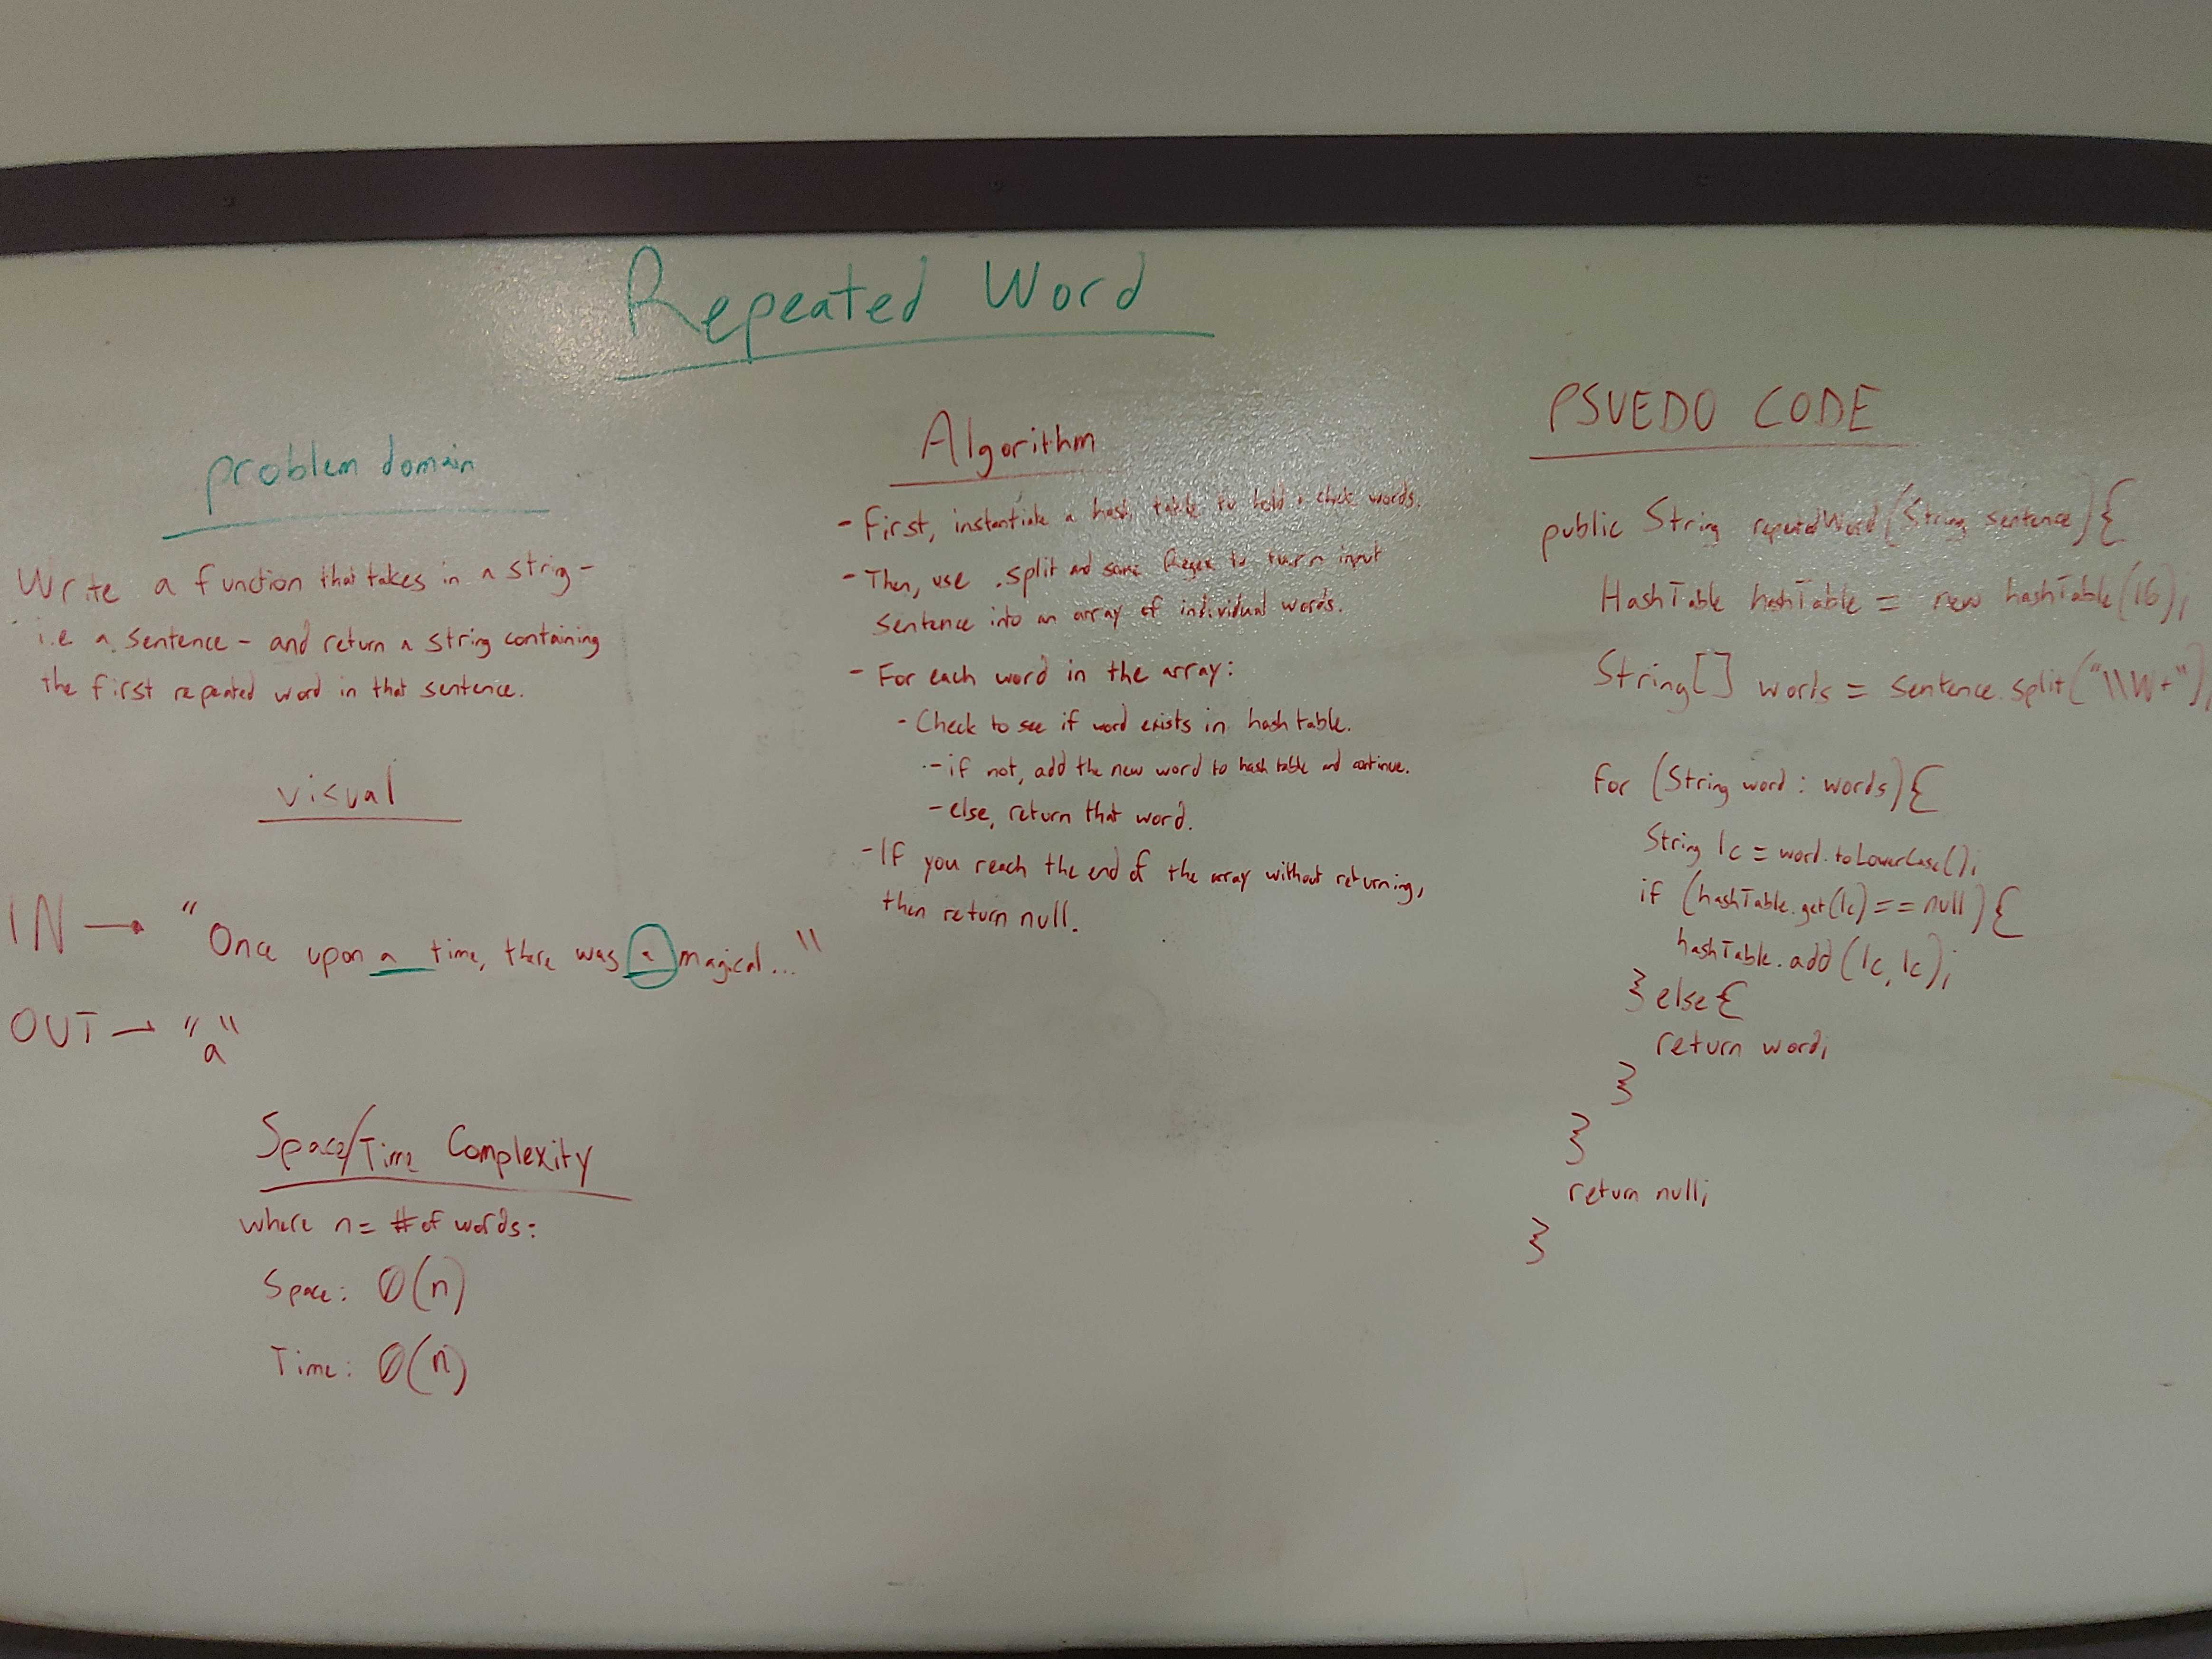 Repeated Word
problem domain
Write a function that takes in a strig -
i.e a sentence - and return a string containing
the first repeated word in that sentence.
visual
IN → "Once upon a time, there was a magical..."
OUT → "a"
Space/Time Complexity
where n = # of words:
Space: O(n)
Time: O(n)
Algorithm
- First, instantiate a hash table to hold + check words.
- Then, use .split and some Regex to turn input
sentence into an array of individual words.
- For each word in the array:
- Check to see if word exists in hash table.
- if not, add the new word to hash table and continue.
- else, return that word.
- If you reach the end of the array without returning,
then return null.
PSUEDO CODE
public String repeatedWord(String sentence){
HashTable hashTable = new hashTable(16);
String[] words = sentence.split("\\W+");
for (String word : words){
String lc = word.toLowerCase();
if (hashTable.get(lc) == null){
hashTable.add(lc, lc);
} else {
return word;
}
}
return null;
}